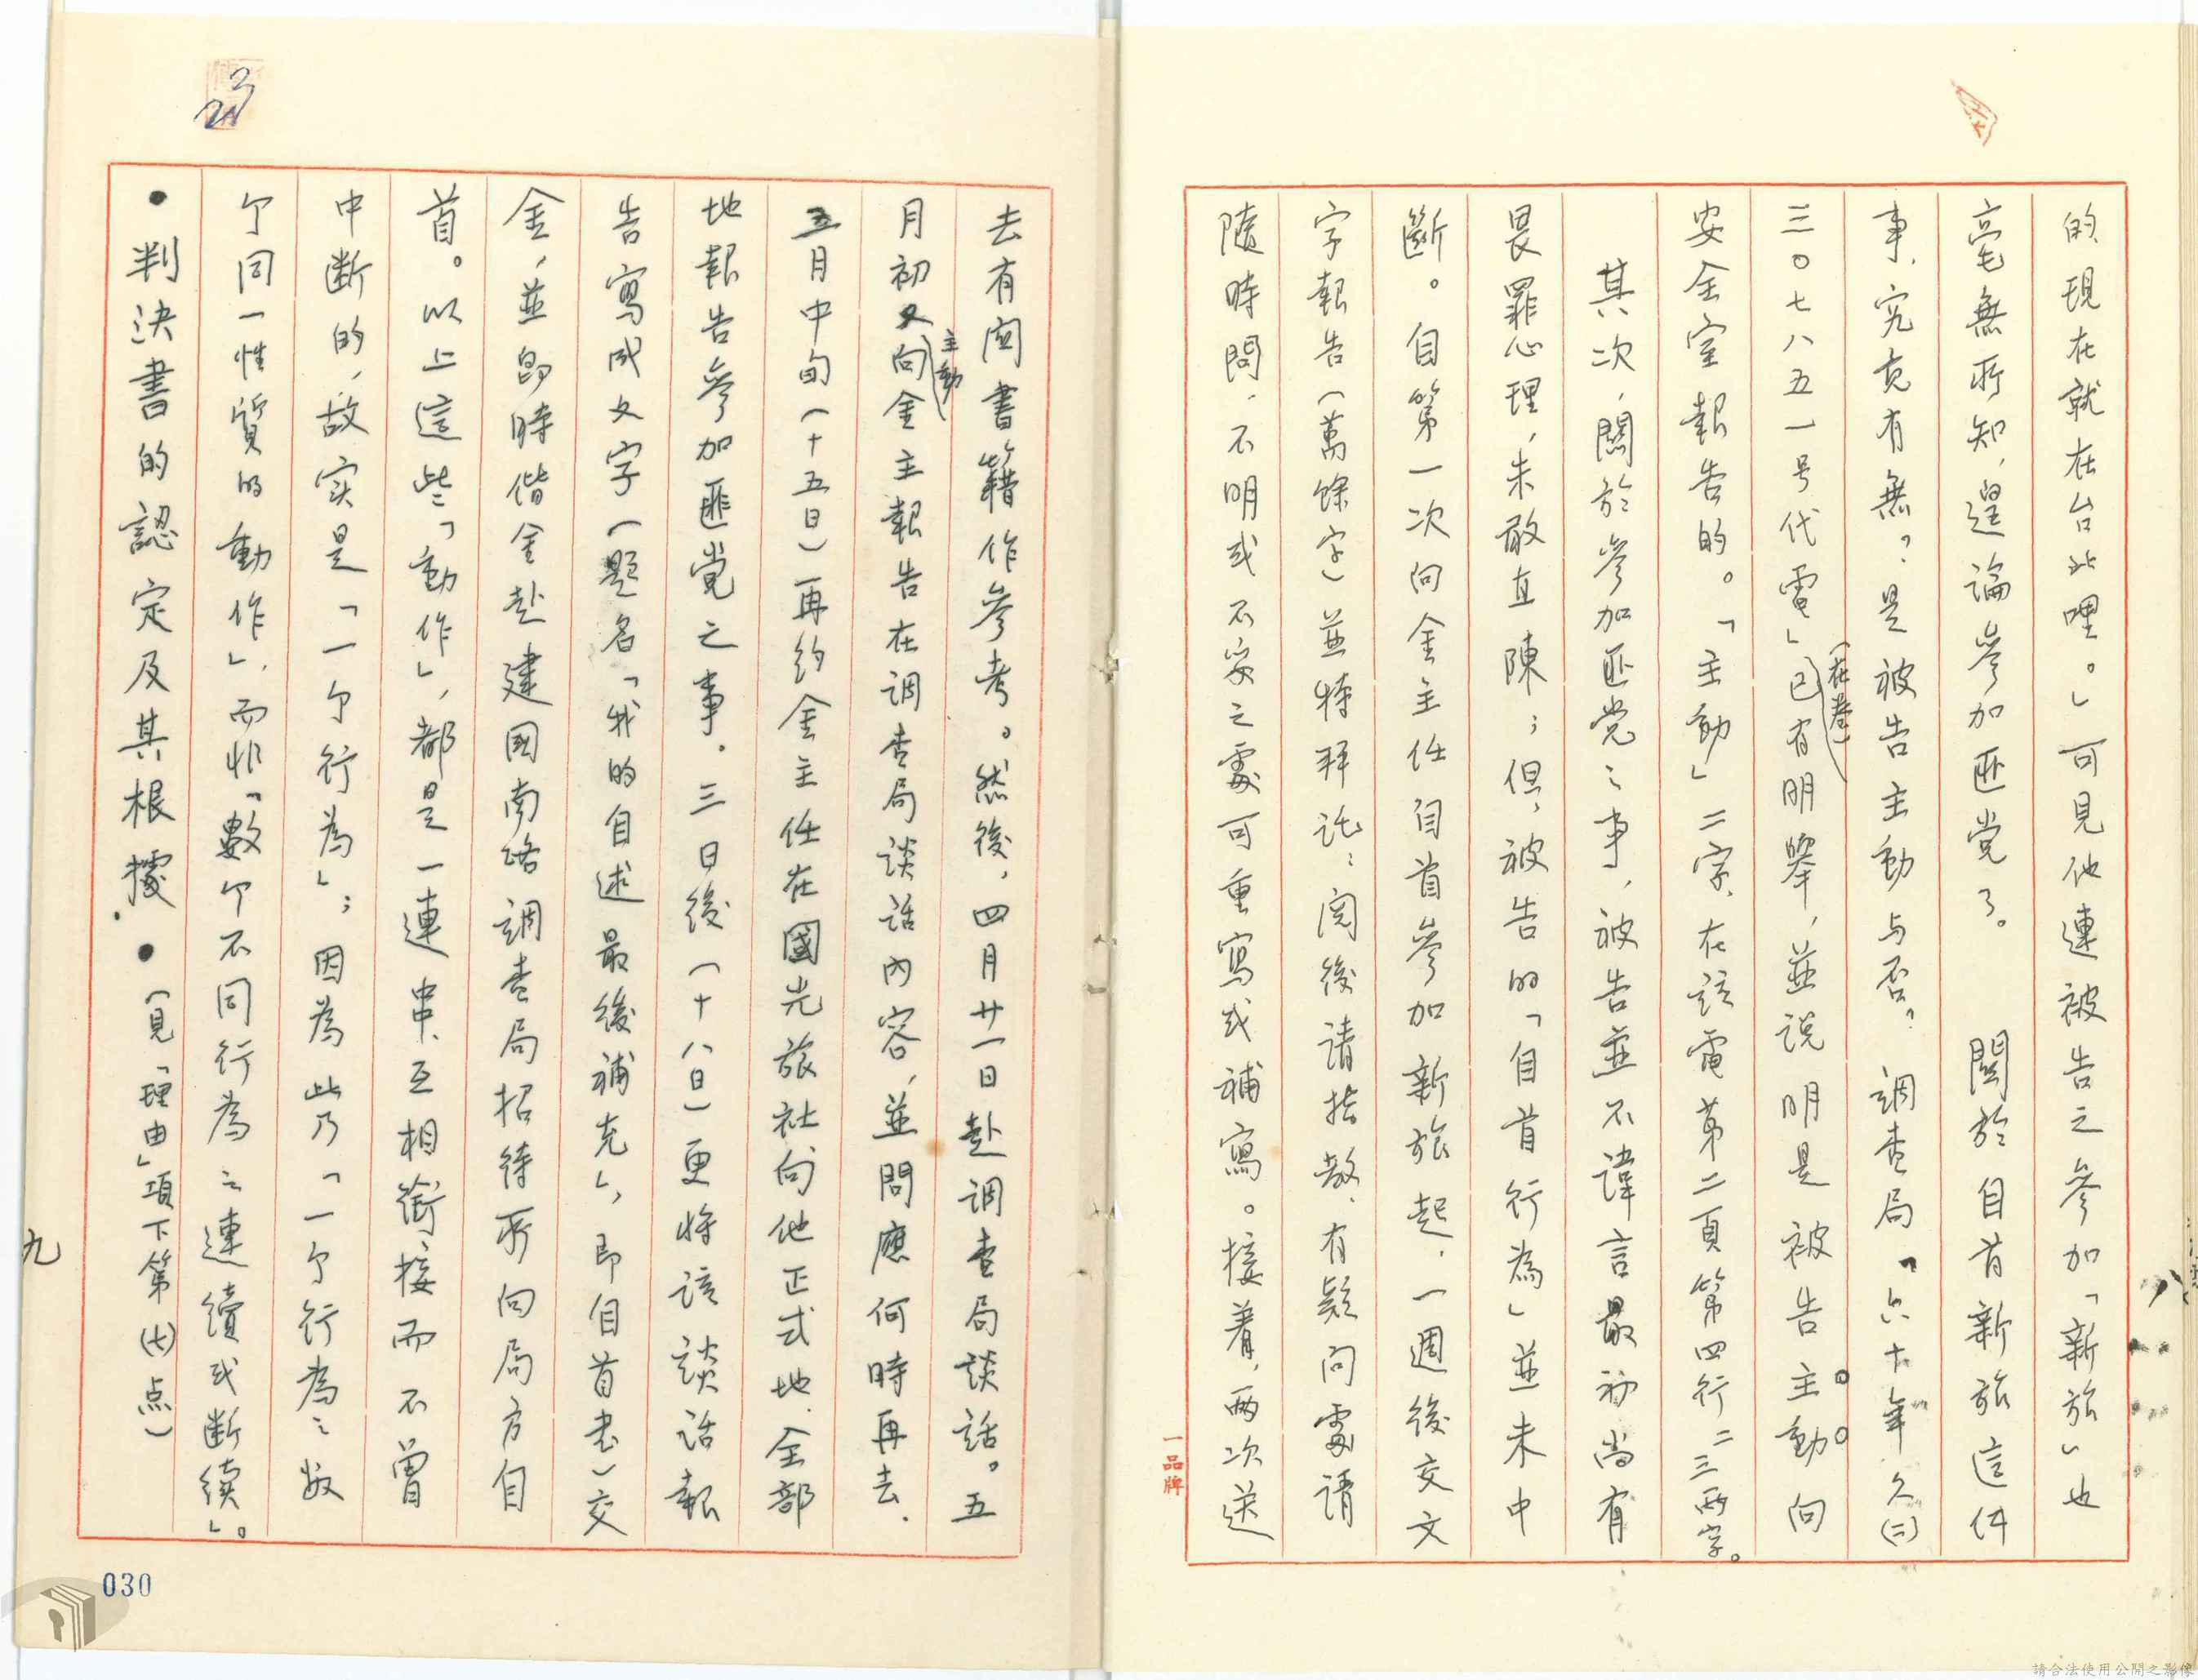 的現在就在台北哩。」可見他連被告之參加「新旅」也
毫無所知,遑論參加匪党了。 關於自首新旅這件
事,究竟有無?是被告主動与否?調查局「六十年 (二)
三〇七八五一号代電」(在卷)已有明舉,並説明是被告主動向
安全室報告的。「主動」二字,在該電第二頁第四行二三兩字。
其次,關於參加匪党之事,被告並不諱言最初尚有
畏罪心理,未敢直陳;但,被告的「自首行為」並未中
斷。自第一次向金主任自首參加新旅起,一週後交文
字報告(萬餘字)並特拜託:閱後請指教,有疑问處請
隨時問,不明或不妥之處可重寫或補寫。接着,兩次送
一品牌
去有関書籍作參考。然後,四月廿一日赴調查局談話。五
月初又主動向金主報告在調查局談話內容,並問應何時再去.
五月中旬(十五日)再约金主任在國光旅社向他正式地.全部
地報告參加匪黨之事。三日後(十八日)更将該談話報
告寫成文字(題名「我的自述最後補充」,即自首书)交
金,並即時偕金赴建國南路調查局招待所向局方自
首。以上這些「動作」,都是一連串、互相銜接而不曾
中断的,故实是「一个行為」;因為此乃「一个行為之数
个同一性質的動作」,而非「數个不同行為之連續或断續」。
●判決書的認定及其根據.●(見「理由」項下第(七)点)
九
030
請合法使用公開之影像